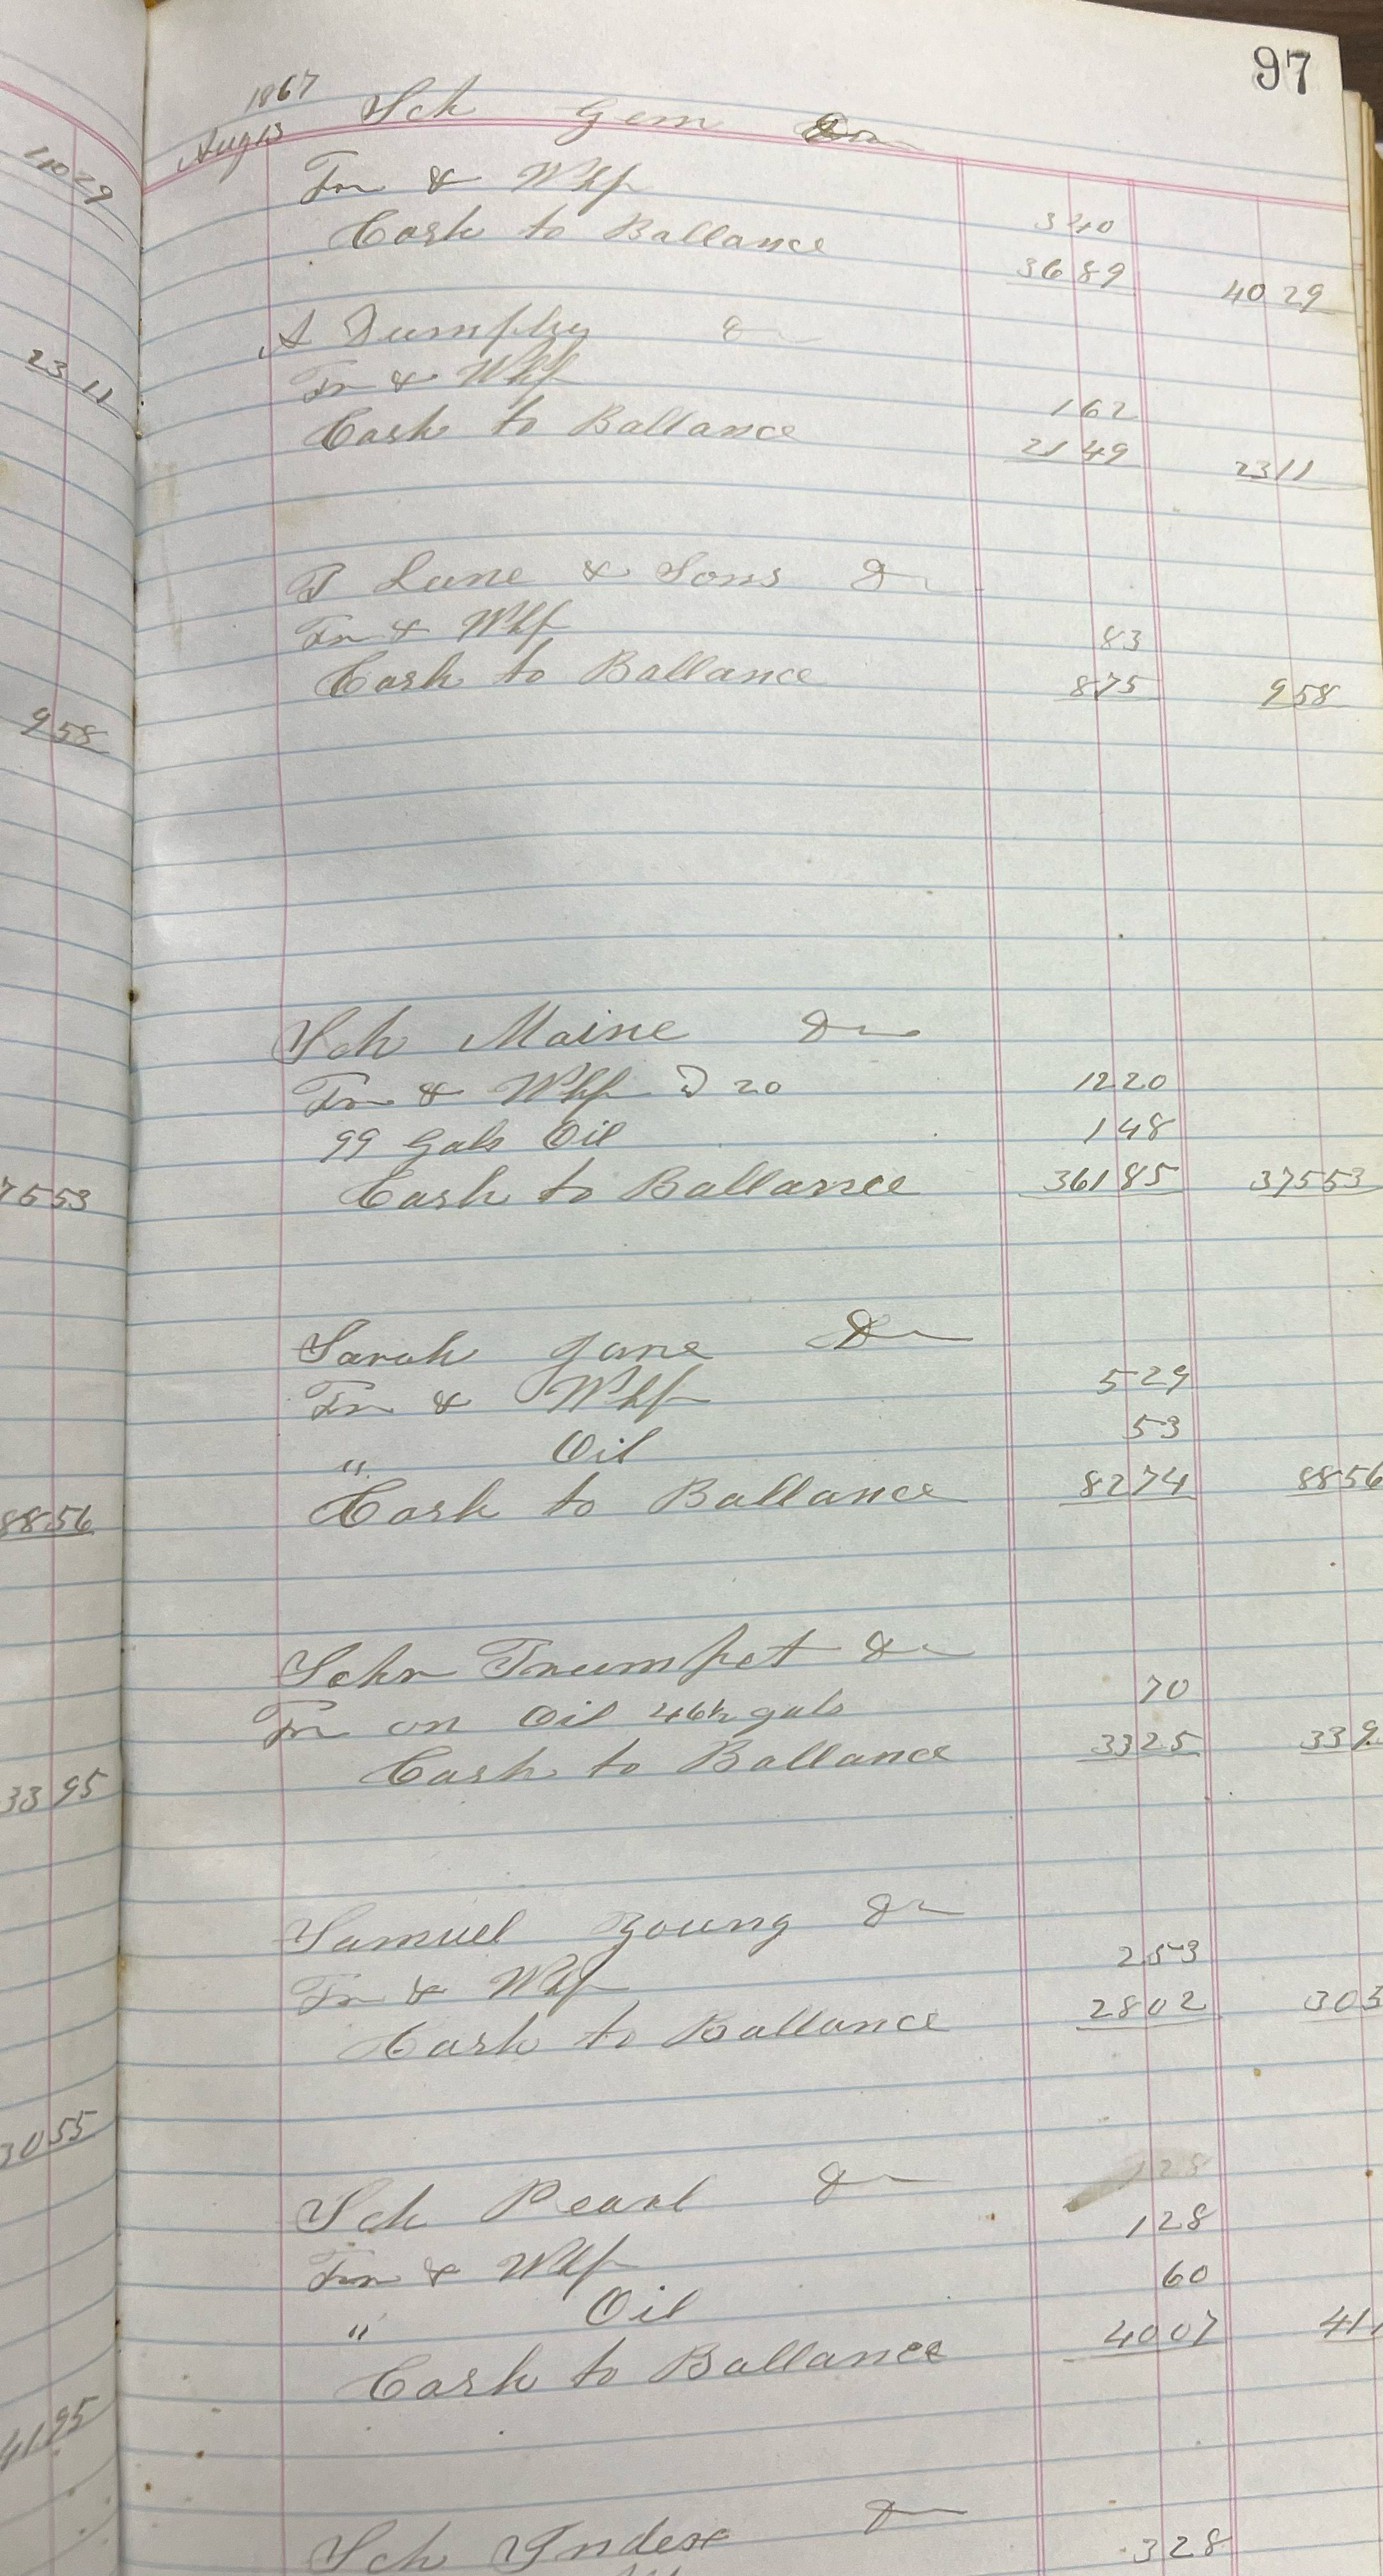 97
1867
Aug 13 Sch Gem Dr
Tr & Whf 3 40
Cash to Ballance 36 89 40 29
A Dumphy Dr
Tr & Whf 1 62
Cash to Ballance 21 49 23 11
T Lane & Sons Dr
Tr & Whf 83
Cash to Ballance 8 75 9 58
Sch Maine Dr
Tr & Whf D 20 12 20
99 Gals Oil 1 48
Cash to Ballance 361 85 375 53
Sarah Jane Dr
Tr & Whf 5 29
" Oil 53
Cash to Ballance 82 74 88 56
Schr Trumpet Dr
Tr on Oil 46½ gals 70
Cash to Ballance 33 25 33 9
Samuel Young Dr
Tr & Whf 2 53
Cash to Ballance 28 02 30 5
Sch Pearl Dr 128
Tr & Whf 1 28
" Oil 60
Cash to Ballance 40 07 41
Sch Index Dr 3 28
40 29
23 11
9 58
7553
88 56
33 95
30 55
41 95